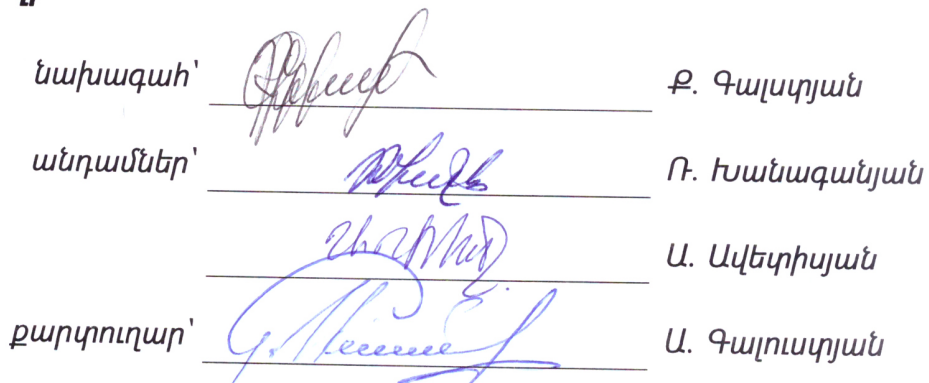 նախագահ՝ Ք. Գալստյան
անդամներ՝ Ռ. Խանագանյան
Ա. Ավետիսյան
քարտուղար՝ Ա. Գալուստյան